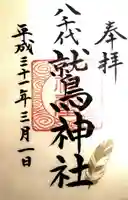 奉拝
八千代
鷲鳥神社
平成三十一年三月一日